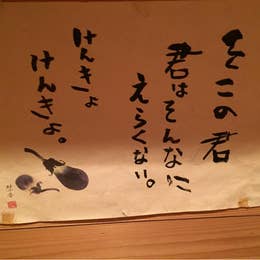 そこの君
君はそんなに
えらくない。
けんきょ
けんきょ。